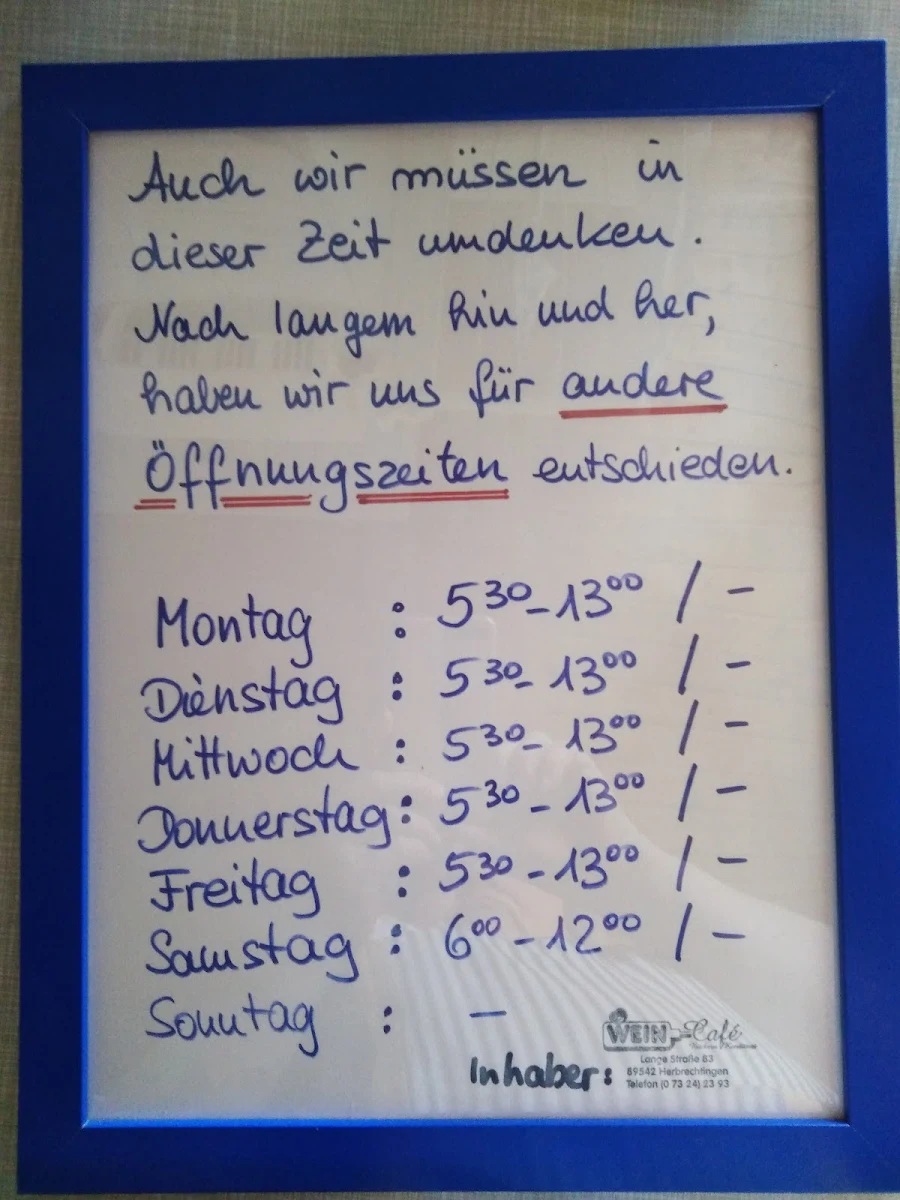 Auch wir müssen in
dieser Zeit umdenken.
Nach langem hin und her,
haben wir uns für andere
Öffnungszeiten entschieden.
Montag : 5³⁰-13⁰⁰ / -
Dienstag : 5³⁰-13⁰⁰ / -
Mittwoch : 5³⁰-13⁰⁰ / -
Donnerstag: 5³⁰-13⁰⁰ / -
Freitag : 5³⁰-13⁰⁰ / -
Samstag : 6⁰⁰-12⁰⁰ / -
Sonntag : -
Inhaber:
WEIN-Café
Lange Straße 83
89542 Herbrechtingen
Telefon (0 73 24) 23 93